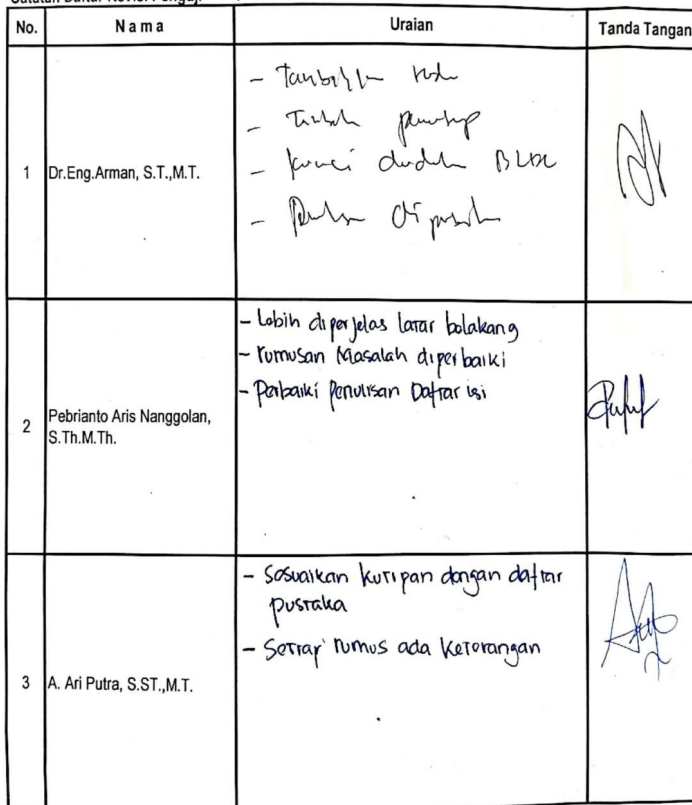 Catatan Daftar Revisi Penguji
No.
Nama
Uraian
Tanda Tangan
1
Dr.Eng.Arman, S.T.,M.T.
-
-
- kunci BLDC
- di
2
Pebrianto Aris Nanggolan,
S.Th.M.Th.
- Lebih diperjelas latar belakang
- rumusan Masalah diperbaiki
- Perbaiki Penulisan Daftar isi
3
A. Ari Putra, S.ST.,M.T.
- Sesuaikan kutipan dengan daftar
pustaka
- Setiap rumus ada keterangan